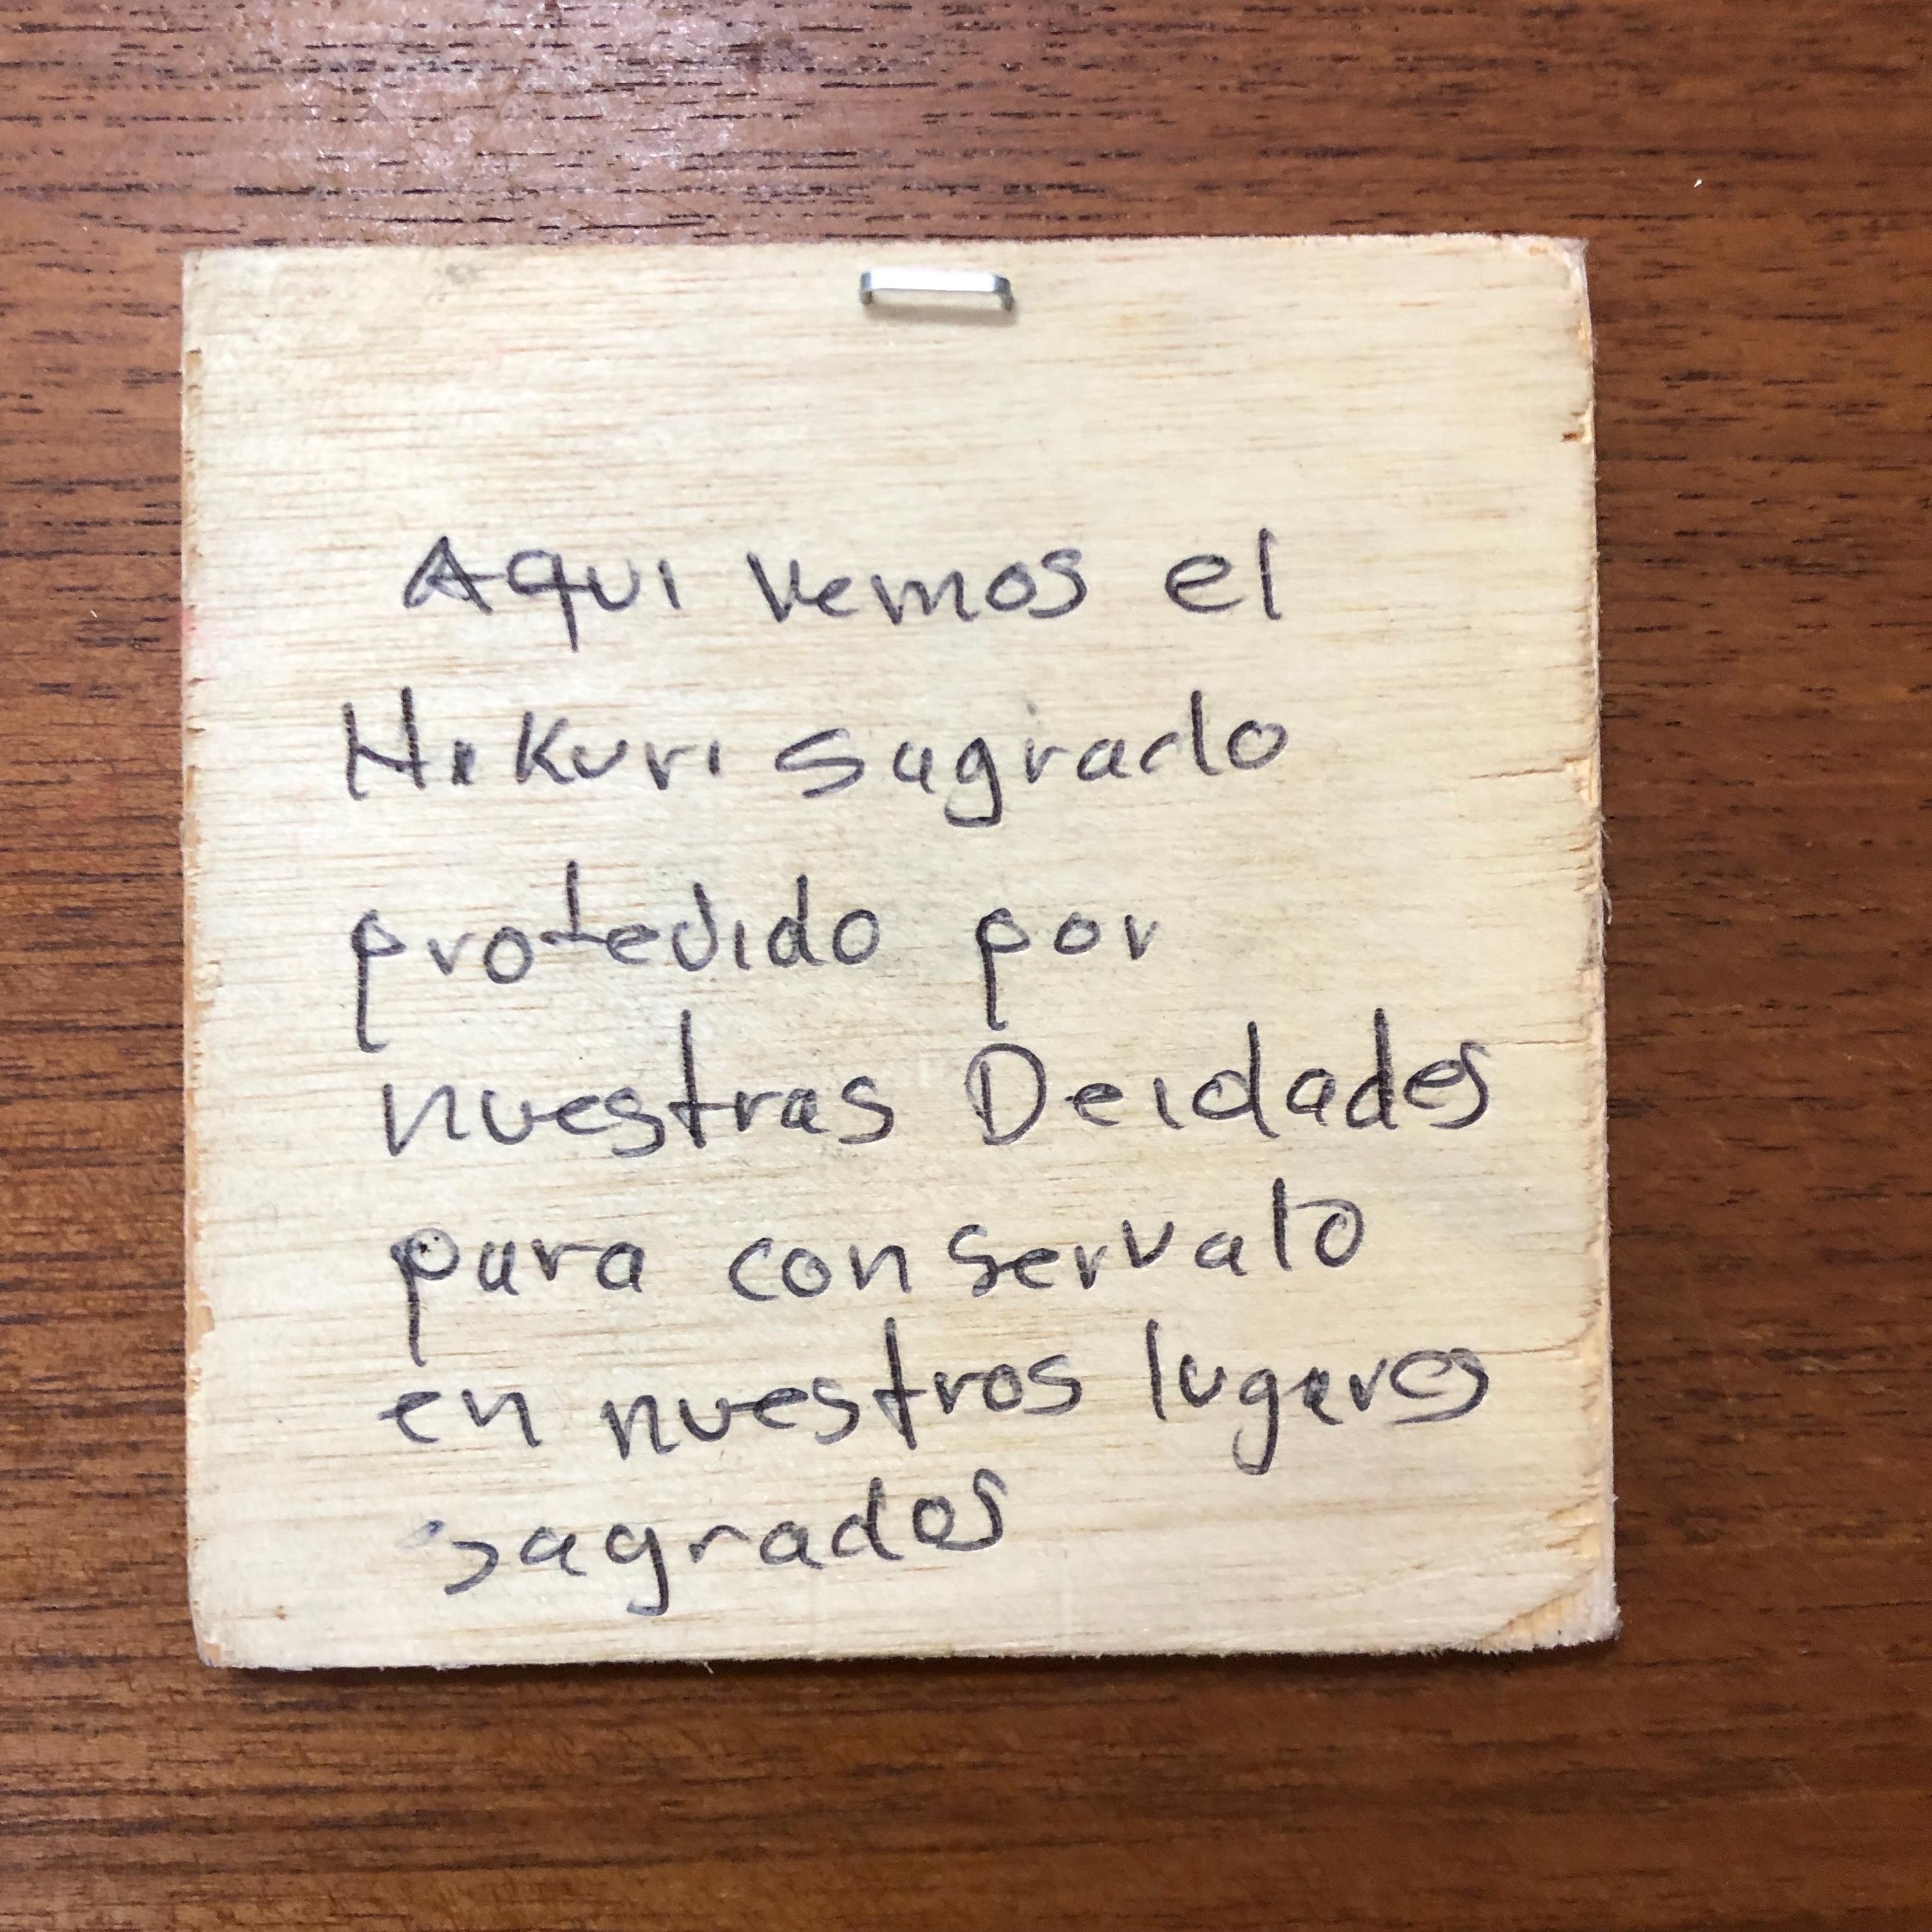 Aqui vemos el
Hikuri sagrado
protejido por
nuestras Deidades
para conservalo
en nuestros lugares
sagrados